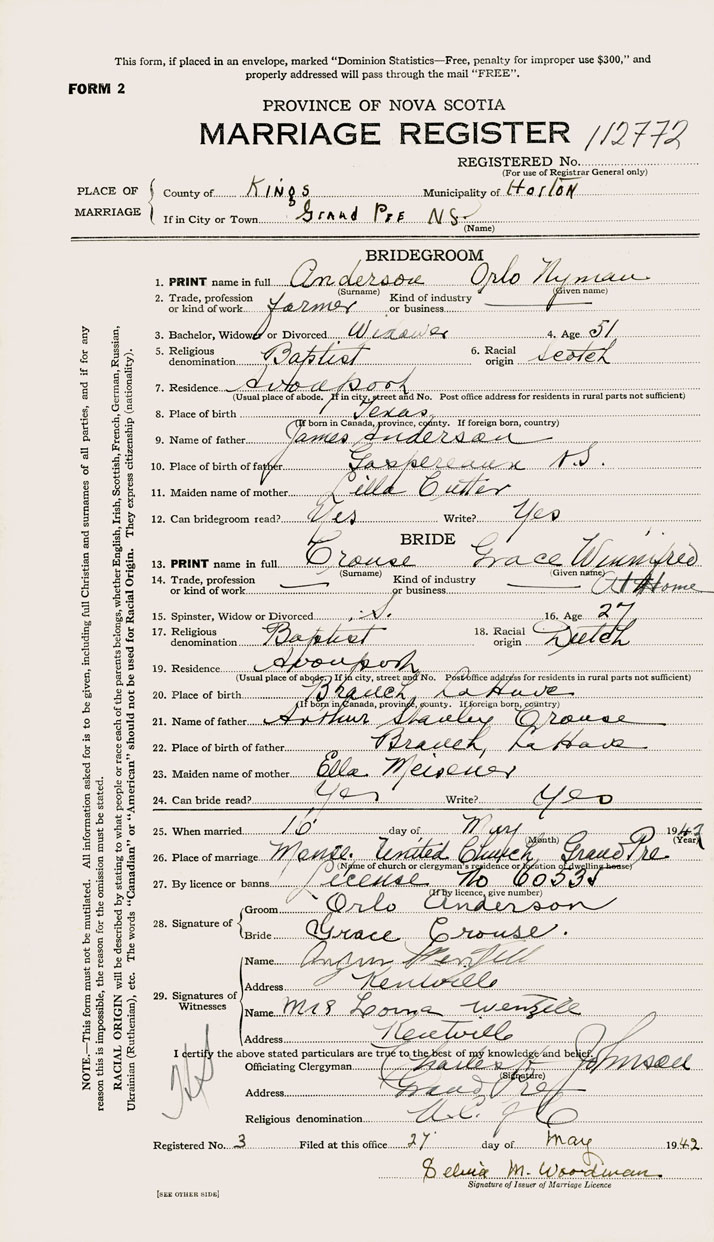 This form, if placed in an envelope, marked "Dominion Statistics—Free, penalty for improper use $300," and
properly addressed will pass through the mail "FREE".
FORM 2
PROVINCE OF NOVA SCOTIA
MARRIAGE REGISTER 112772
REGISTERED No.
(For use of Registrar General only)
PLACE OF MARRIAGE
County of Kings Municipality of Horton
If in City or Town Grand Pre NS
(Name)
BRIDEGROOM
1. PRINT name in full Anderson Orlo Nyman
(Surname) (Given name)
2. Trade, profession or kind of work farmer Kind of industry or business
3. Bachelor, Widower or Divorced Widower 4. Age 51
5. Religious denomination Baptist 6. Racial origin Scotch
7. Residence Avonport
(Usual place of abode. If in city, street and No. Post office address for residents in rural parts not sufficient)
8. Place of birth Texas
(If born in Canada, province, county. If foreign born, country)
9. Name of father James Anderson
10. Place of birth of father Gaspereaux N.S.
11. Maiden name of mother Lilla Cutter
12. Can bridegroom read? Yes Write? Yes
BRIDE
13. PRINT name in full Crouse Grace Winnifred
(Surname) (Given name)
14. Trade, profession or kind of work Kind of industry or business At Home
15. Spinster, Widow or Divorced S. 16. Age 27
17. Religious denomination Baptist 18. Racial origin Dutch
19. Residence Avonport
(Usual place of abode. If in city, street and No. Post office address for residents in rural parts not sufficient)
20. Place of birth Branch LaHave
(If born in Canada, province, county. If foreign born, country)
21. Name of father Arthur Stanley Crouse
22. Place of birth of father Branch, LaHave
23. Maiden name of mother Ella Meisener
24. Can bride read? Yes Write? Yes
25. When married 16 day of May 1942
(Month) (Year)
26. Place of marriage Manse. United Church, Grand Pre
(Name of church or clergyman's residence or location of dwelling house)
27. By licence or banns License No 60335
(If by licence, give number)
28. Signature of
Groom Orlo Anderson
Bride Grace Crouse.
29. Signatures of Witnesses
Name Wenzell
Address Kentville
Name Mrs Lorna Wenzell
Address Kentville
I certify the above stated particulars are true to the best of my knowledge and belief.
Officiating Clergyman Charles Johnson
(Signature)
Address Grand Pre
Religious denomination U.C. of C
Registered No. 3 Filed at this office 27 day of May 1942
Selvia M. Woodman.
Signature of Issuer of Marriage Licence
[SEE OTHER SIDE]
NOTE.—This form must not be mutilated. All information asked for is to be given, including full Christian and surnames of all parties, and if for any
reason this is impossible, the reason for the omission must be stated.
RACIAL ORIGIN will be described by stating to what people or race each of the parents belongs, whether English, Irish, Scottish, French, German, Russian,
Ukrainian (Ruthenian), etc. The words "Canadian" or "American" should not be used for Racial Origin. They express citizenship (nationality).